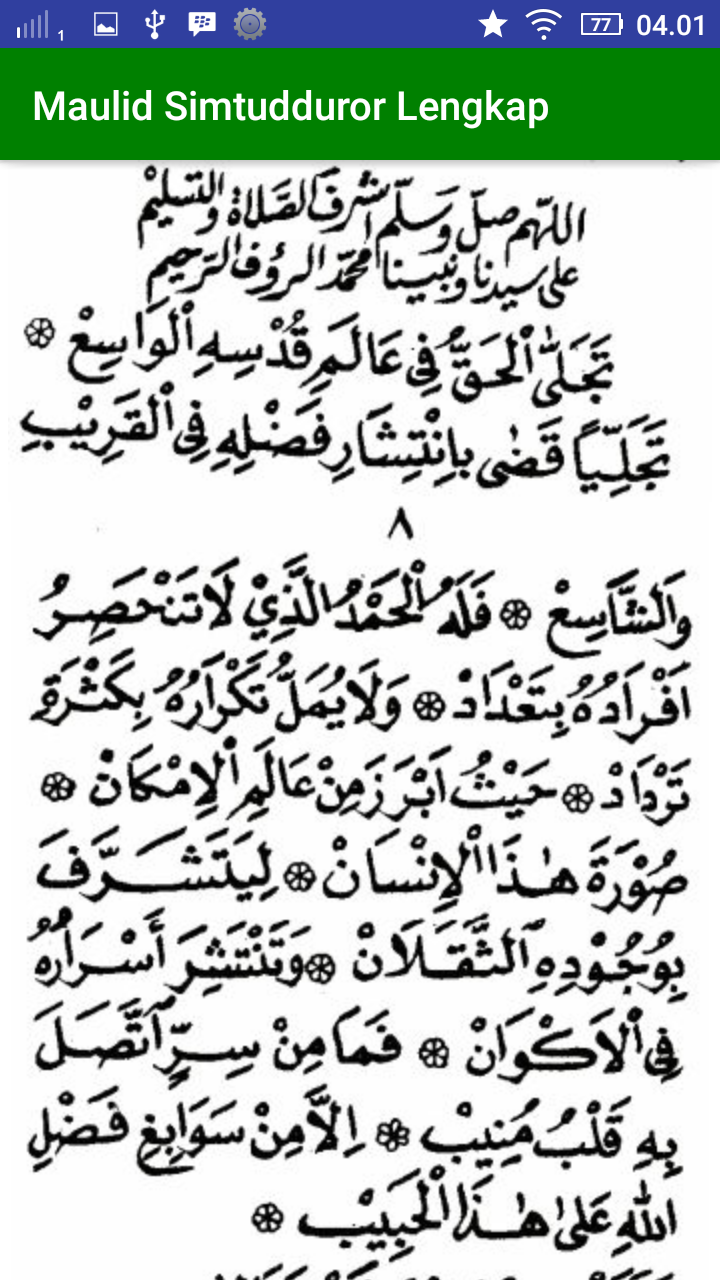 1 77 04.01
Maulid Simtudduror Lengkap
اللهم صل وسلم اشرف الصلاة والتسليم
على سيدنا ونبينا محمد الرؤف الرحيم
تَجَلَّى الْحَقُّ فِي عَالَمِ قُدْسِهِ الْوَاسِعْ
تَجَلِّيًا قَضٰى بِانْتِشَارِ فَضْلِهِ فِى الْقَرِيْبِ
٨
وَالشَّاسِعْ فَلَهُ الْحَمْدُ الَّذِيْ لَا تَنْحَصِرُ
اَفْرَادُهُ بِتَعْدَادْ وَلَا يُمَلُّ تَكْرَارُهُ بِكَثْرَةِ
تَرْدَادْ حَيْثُ اَبْرَزَ مِنْ عَالَمِ الْاِمْكَانْ
صُوْرَةَ هٰذَا الْاِنْسَانْ لِيَتَشَرَّفَ
بِوُجُوْدِهِ الثَّقَلَانْ وَتَنْتَشِرَ أَسْرَارُهُ
فِى الْاَكْوَانْ فَمَا مِنْ سِرٍّ اتَّصَلَ
بِهِ قَلْبُ مُنِيْبْ اِلَّا مِنْ سَوَابِغِ فَضْلِ
اللهِ عَلٰى هٰذَا الْحَبِيْبْ